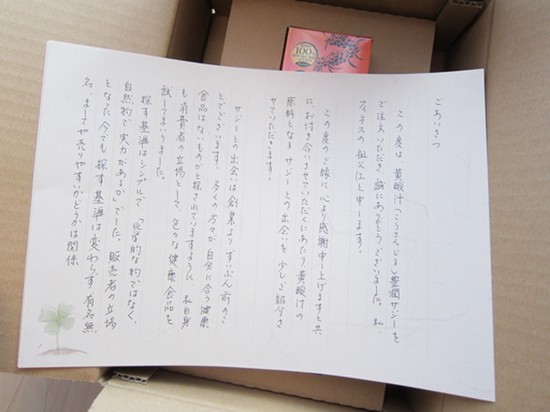 ごあいさつ
この度は、黄酸汁(こうさんじる)豊潤サジーを
ご注文いただき、誠にありがとうございました。私、
フィネスの祖父江と申します。
この度のご縁に、心より感謝申し上げますと共
に、お付き合いさせていただくにあたり、黄酸汁の
原料となるサジーとの出会いを、少しご紹介さ
せていただきます。
サジーとの出会いは創業よりずいぶん前のこ
とでございます。多くの方々が自分に合う健康
食品はないものかと探されていますように、私自身
も消費者の立場として、色々な健康食品を
試してまいりました。
探す基準はシンプルで、「化学的な物ではなく、
自然物で実力があるか」でした。販売者の立場
となった今でも、探す基準は変わらず、有名無
名、ましてや売りやすいかどうかは関係
100